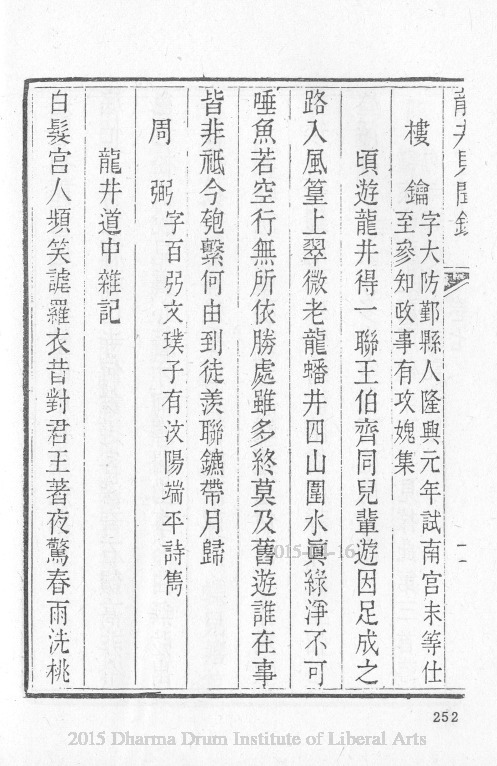 龍井見聞錄
樓鑰字大防鄞縣人隆興元年試南宮末等仕
至參知政事有攻媿集
頃遊龍井得一聯王伯齊同兒輩遊因足成之
路入風篁上翠微老龍蟠井四山圍水眞綠淨不可
唾魚若空行無所依勝處雖多終莫及舊遊誰在事
皆非祗今匏繫何由到徒羨聯鑣帶月歸
周弼字百弜文璞子有汶陽端平詩雋
龍井道中雜記
白髮宮人頻笑謔羅衣昔對君王著夜驚春雨洗桃
252
2015 Dharma Drum Institute of Liberal Arts